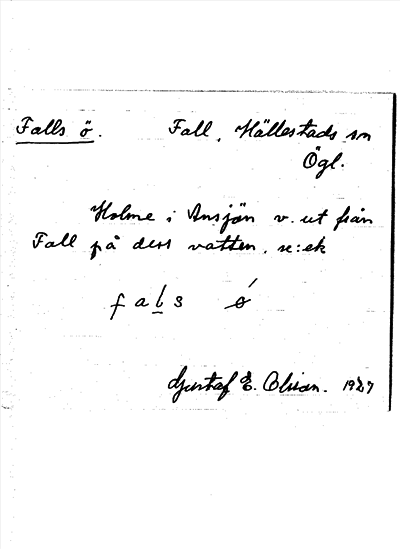 Falls ö. Fall, Hällestads sn
Ögl.
Holme i Ansjön v. ut från
Fall på dess vatten. se: ek
fals ǿ
Gustaf E. Olsson. 1927